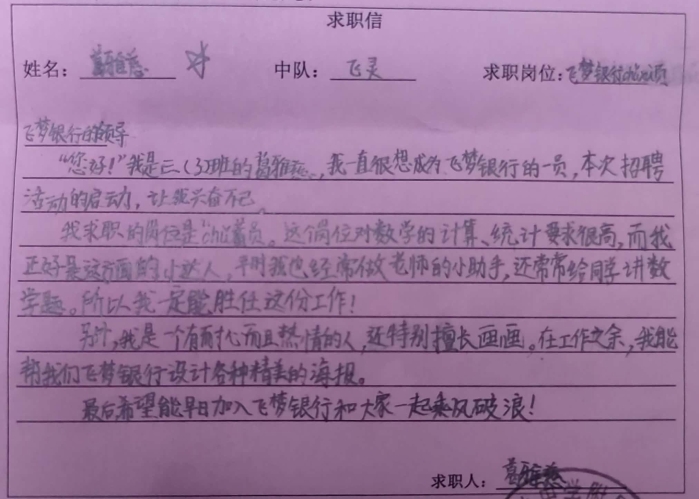 求职信
姓名： 葛雅慈 中队： 飞灵 求职岗位：飞梦银行chu蓄员
飞梦银行的领导
“您好！”我是三（3）班的葛雅慈，我一直很想成为飞梦银行的一员，本次招聘
活动的启动，让我兴奋不已。
我求职的岗位是“chu蓄员。这个岗位对数学的计算、统计要求很高，而我
正好是这方面的小达人，平时我也经常做老师的小助手，还常常给同学讲数
学题。所以我一定能胜任这份工作！
另外，我是一个有耐心而且热情的人，还特别擅长画画。在工作之余，我能
帮我们飞梦银行设计各种精美的海报。
最后希望能早日加入飞梦银行和大家一起乘风破浪！
求职人： 葛雅慈